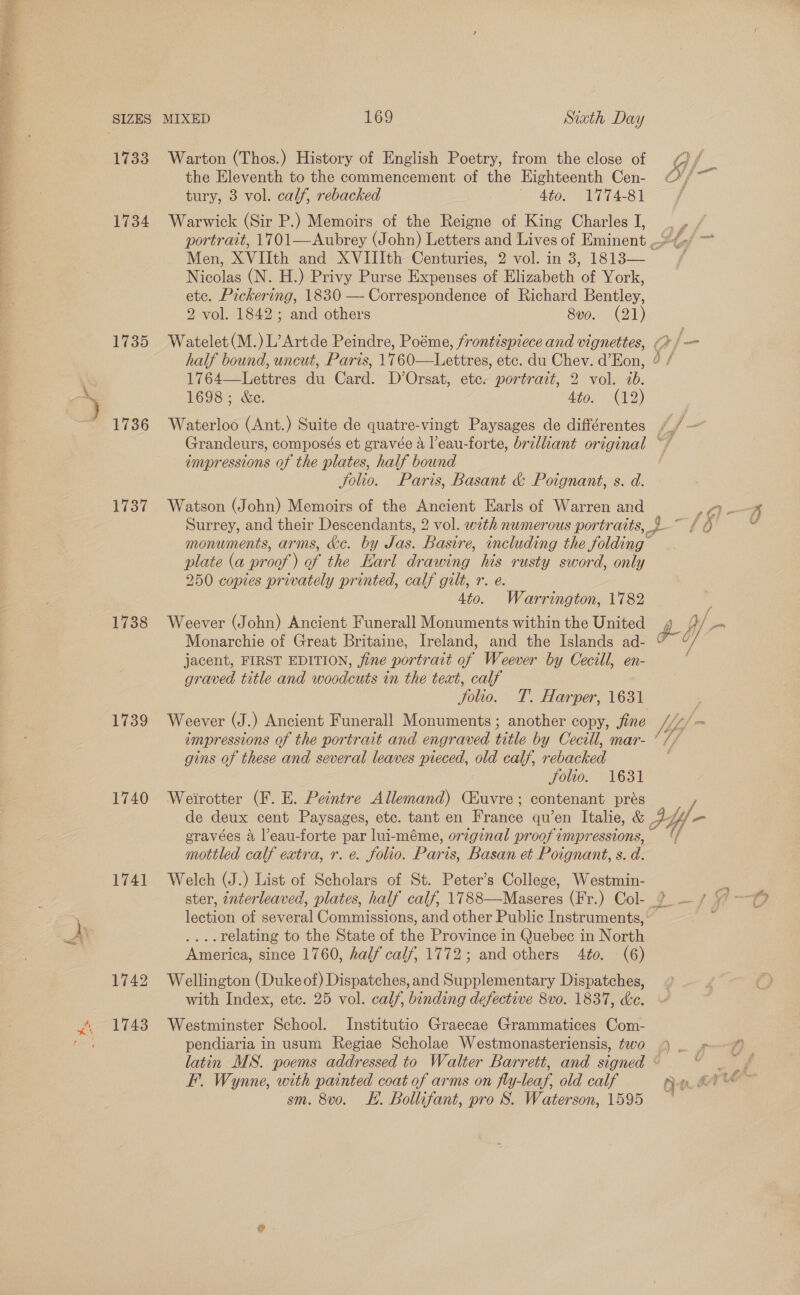 SIZES MIXED 169 Sixth Day
1733 Warton (Thos.) History of English Poetry, from the close of
the Eleventh to the commencement of the Eighteenth Cen-
tury, 3 vol. calf, rebacked 4to. 1774-81
1734 Warwick (Sir P.) Memoirs of the Reigne of King Charles I,
portrait, 1701—Aubrey (John) Letters and Lives of Eminent
Men, XVIIth and XVIIIth Centuries, 2 vol. in 3, 1813—
Nicolas (N. H.) Privy Purse Expenses of Elizabeth of York,
etc. Pickering, 1830 — Correspondence of Richard Bentley,
2 vol. 1842; and others 8vo. (21)
1735 Watelet (M.) L'Art de Peindre, Poéme, frontispiece and vignettes,
half bound, uncut, Paris, 1760—Lettres, etc. du Chev. d'Eon,
1764—Lettres du Card. D'Orsat, etc. portrait, 2 vol. ib.
1698; &c. 4to. (12)
1736 Waterloo (Ant.) Suite de quatre-vingt Paysages de différentes
Grandeurs, composés et gravée à l'eau-forte, brilliant original
impressions of the plates, half bound
folio. Paris, Basant & Poignant, s. d.
1737 Watson (John) Memoirs of the Ancient Earls of Warren and
Surrey, and their Descendants, 2 vol. with numerous portraits,
monuments, arms, &c. by Jas. Basire, including the folding
plate (a proof) of the Earl drawing his rusty sword, only
250 copies privately printed, calf gilt, r. e.
4to. Warrington, 1782
1738 Weever (John) Ancient Funerall Monuments within the United
Monarchie of Great Britaine, Ireland, and the Islands ad-
jacent, FIRST EDITION, fine portrait of Weever by Cecill, en-
graved title and woodcuts in the text, calf
folio. T. Harper, 1631
1739 Weever (J.) Ancient Funerall Monuments; another copy, fine
impressions of the portrait and engraved title by Cecill, mar-
gins of these and several leaves pieced, old calf, rebacked
folio. 1631
1740 Weirotter (F. E. Peintre Allemand) Œuvre; contenant près
de deux cent Paysages, etc. tant en France qu'en Italie, &
gravées à l'eau-forte par lui-méme, original proof impressions,
mottled calf extra, r. e. folio. Paris, Basan et Poignant, s. d.
1741 Welch (J.) List of Scholars of St. Peter's College, Westmin-
ster, interleaved, plates, half calf, 1788—Maseres (Fr.) Col-
lection of several Commissions, and other Public Instruments,
.... relating to the State of the Province in Quebec in North
America, since 1760, half calf, 1772; and others 4to. (6)
1742 Wellington (Duke of) Dispatches, and Supplementary Dispatches,
with Index, etc. 25 vol. calf, binding defective 8vo. 1837, &c.
1743 Westminster School. Institutio Graecae Grammatices Com-
pendiaria in usum Regiae Scholae Westmonasteriensis, two
latin MS. poems addressed to Walter Barrett, and signed
F. Wynne, with painted coat of arms on fly-leaf, old calf
sm. 8vo. E. Bollifant, pro S. Waterson, 1595